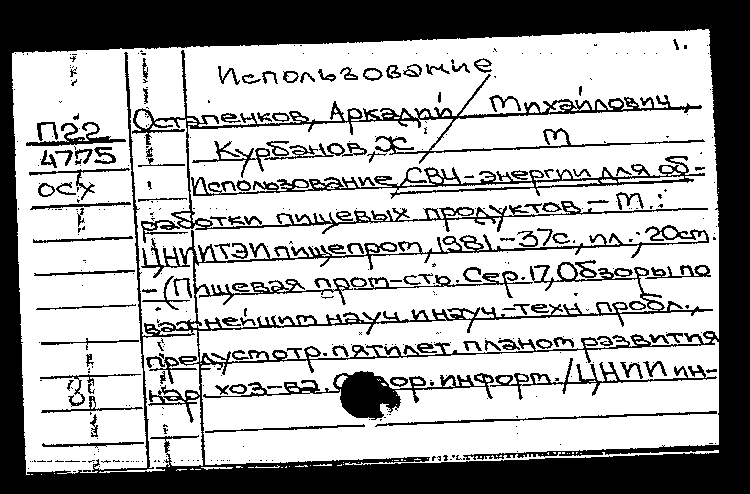 1.
Использование
Остапенков, Аркадий Михайлович,
П22
Курбанов, Ж М
4775
Использование СВЧ-энергии для об-
осх
работки пищевых продуктов.- М.:
ЦНИИТЭИпищепром, 1981.-37с., ил.; 20см.
-(Пищевая пром-сть. Сер. 17, Обзоры по
важнейшим науч. и науч.-техн. пробл.,
предусмотр. пятилет. планом развития
8
нар. хоз-ва. информ. /ЦНИИ ин-